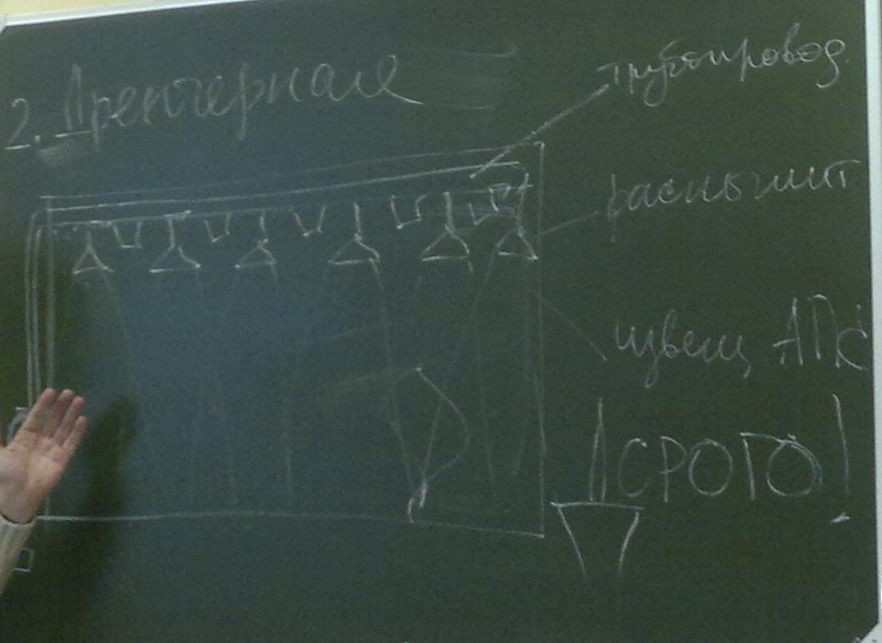 2. Дренчерная
трубопровод
распылит
извещ АПС
ДСРОГО!